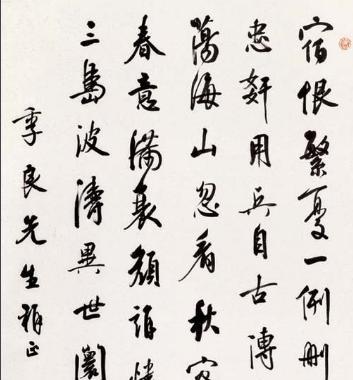 宿恨繁憂一例刪
忠奸用兵自古傳
蕩海山忽看秋
春意滿衰顏誰
三島波濤異世
季良先生正